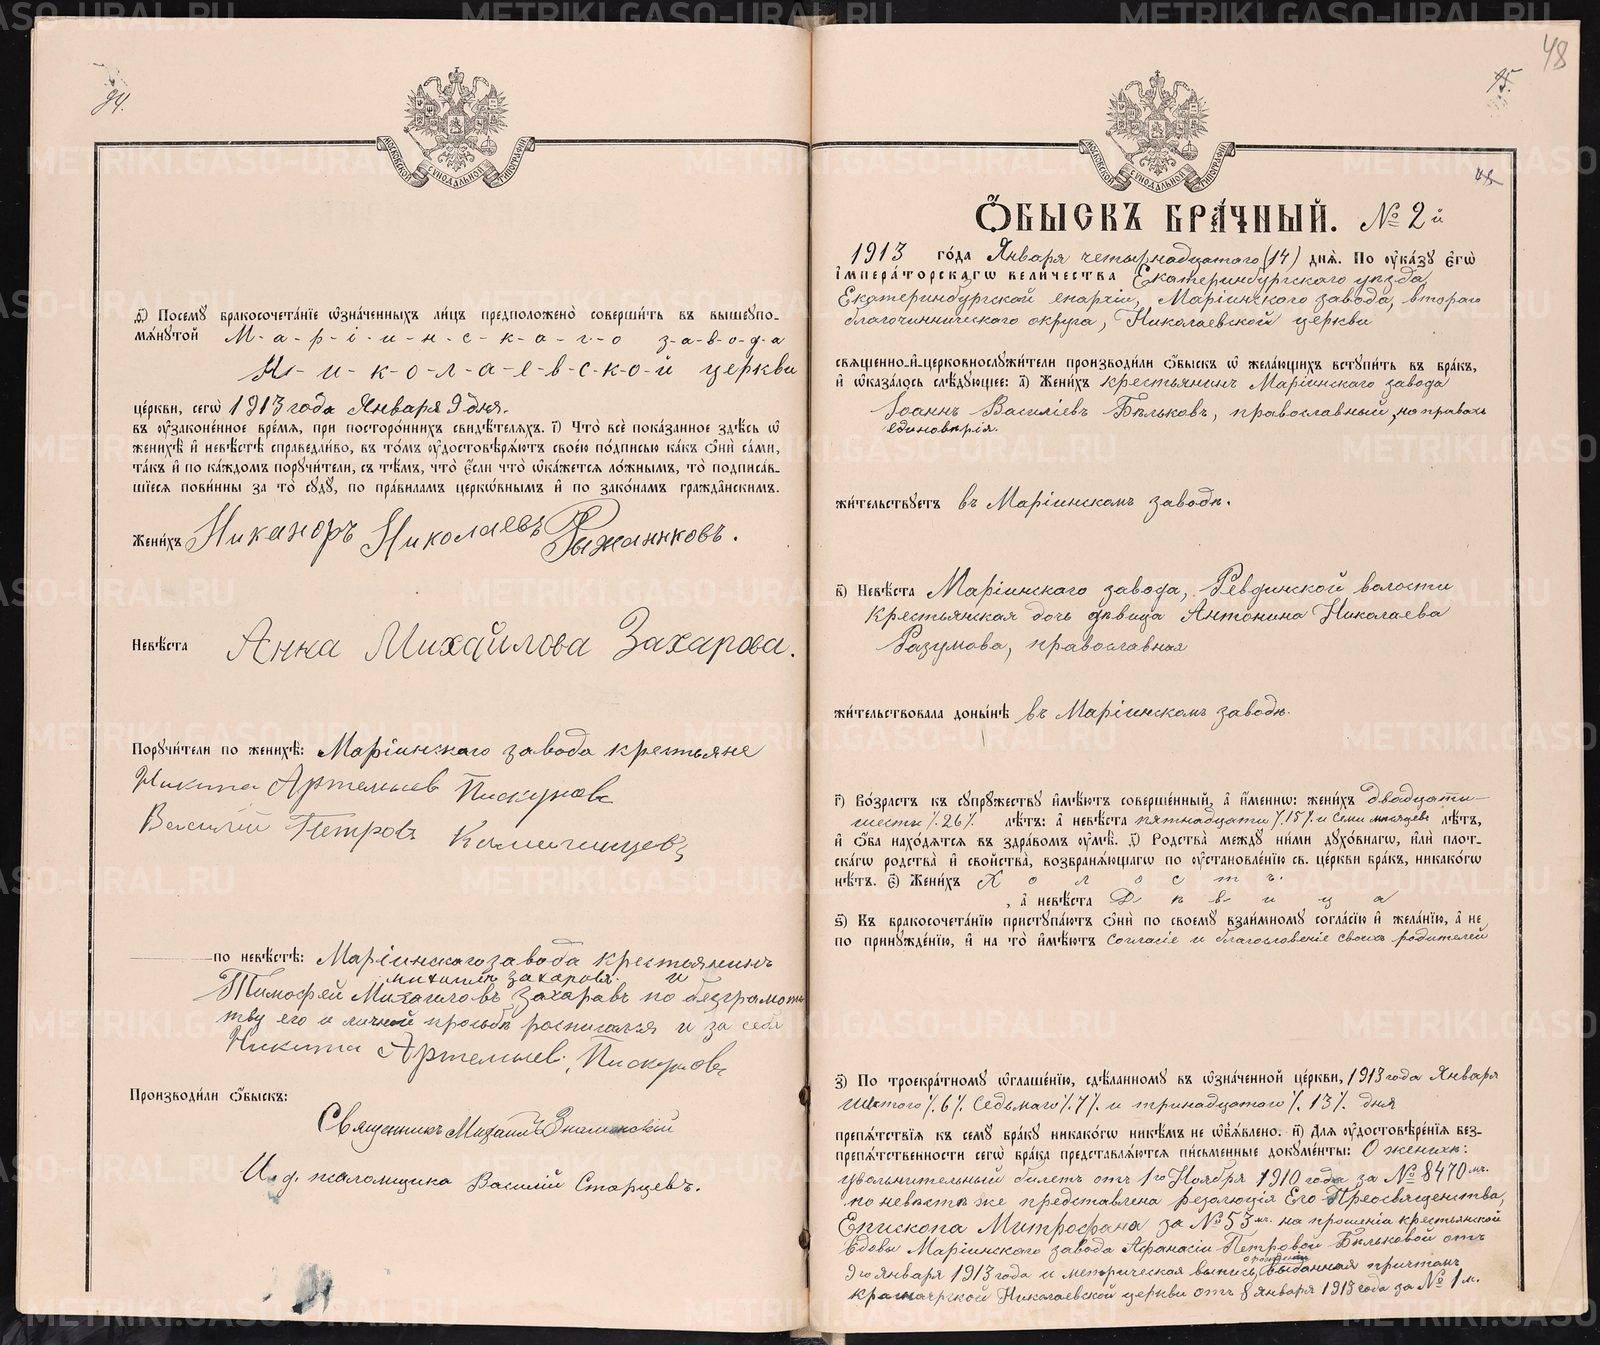 94.
МОСКОВСКОЙ СѴНОДАЛЬНОЙ ТИПОГРАФІИ
д҃) Посемѹ бракосочета́нїе ѡзна́ченныхъ ли́цъ предположено̀ соверши́ть въ вышеупо-
мѧ́нутой М-а-р-і-и-н-с-к-а-г-о з-а-в-о-д-а
Н-и-к-о-л-а-е-в-с-к-о-й церкви
це́ркви, сегѡ̀ 1913 года Января 9 дня.
въ ѹзаконе́нное вре́мѧ, при посторо́ннихъ свидѣ́телѧхъ. і҃) Что̀ всѐ пока́занное здѣ́сь ѡ
женихѣ̀ и҆ невѣ́стѣ справедли́во, въ то́мъ ѹдостовѣрѧ́ютъ свое́ю по́дписью ка́къ ѻнѝ са́ми,
та́къ и҆ по ка́ждомъ поручи́тели, съ тѣ́мъ, что̀ є҆́сли что̀ ѡка́жетсѧ ло́жнымъ, то̀ подписа́в-
шїесѧ пови́нны за то̀ суду̀, по пра́виламъ церко́внымъ и҆ по зако́намъ гражда́нскимъ.
Жени́хъ Никаноръ Николаевъ Рыжанковъ.
Невѣ́ста Анна Михайлова Захарова.
Поручи́тели по женихѣ̀: Маріинскаго завода крестьяне
Никита Артемьев Пискуновъ
Василій Петровъ
по невѣ́стѣ: Маріинскаго завода крестьянинъ
Михаилъ Захаровъ и
Тимофей Михаиловъ Захаравъ по безграмот
тву его и личной просьбѣ росписался и за себя
Никита Артемьев. Пискуновъ
Производи́ли ѻ҆́быскъ:
Священникъ Михаилъ Знаменскій
И. д. псаломщика Василій Старцевъ.
48
95.
48
МОСКОВСКОЙ СѴНОДАЛЬНОЙ ТИПОГРАФІИ
Ѻ҆́БЫСКЪ БРА́ЧНЫЙ. № 2й
1913 го́да Января четырнадцатого (14) днѧ̀. По ѹка́зу є҆гѡ̀
і҆мпера́торскагѡ вели́чества Екатеринбургского уѣзда
Екатеринбургской епархіи, Маріинского завода, втораго
благочинническаго округа, Николаевской церкви
свѧще́нно-и҆-церковнослужи́тели производи́ли ѻ҆́быскъ ѡ жела́ющихъ вступи́ть въ бра́къ,
и҆ ѡказа́лось слѣ́дующее: а҃) Жени́хъ крестьянинъ Маріинскаго завода
Іоаннъ Василіевъ Бѣльковъ, православный, на правахъ
единовѣрія.
жи́тельствуетъ въ Маріинскомъ заводѣ.
в҃) Невѣ́ста Маріинскаго завода, Ревдинской волости
крестьянская дочь дѣвица Антонина Николаева
Разумова, православная
жи́тельствовала доны́нѣ въ Маріинскомъ заводѣ.
г҃) Во́зрастъ къ супру́жеству и҆мѣ́ютъ соверше́нный, а҆ и҆́меннѡ: жени́хъ двадцати-
шести /.26/. лѣ́тъ: а҆ невѣ́ста пятнадцати /.15/. и семи мѣсяцевъ лѣ́тъ,
и҆ ѻ҆́ба нахо́дѧтсѧ въ здра́вомъ ѹмѣ̀. д҃) Родства̀ между ни́ми духо́внагѡ, и҆лѝ пло́т-
скагѡ родства̀ и҆ свойства̀, возбранѧ́ющагѡ по ѹстановле́нїю св. це́ркви бра́къ, никако́гѡ
нѣ́тъ. є҃) Жени́хъ Х о л о с т ъ.
, а҆ невѣ́ста Д ѣ в и ц а
ѕ҃) Къ бракосочета́нїю приступа́ютъ ѻнѝ по своемѹ взаи́мномѹ согла́сїю и҆ жела́нїю, а҆ не
по принужде́нїю, и҆ на то̀ и҆мѣ́ютъ согласіе и благословеніе своихъ родителей
з҃) По троекра́тномѹ ѡглаше́нїю, сдѣ́ланномѹ въ ѡзна́ченной це́ркви, 1913 года Января
шестого /.6/. седьмаго /.7/. и тринадцатого /.13/. дня
препѧ́тствїѧ къ семѹ бра́ку никако́гѡ никѣ́мъ не ѡбъѧ́влено. и҃) Длѧ ѹдостовѣре́нїѧ без-
препѧ́тственности сегѡ̀ бра́ка представлѧ́ютсѧ пи́сьменные докуме́нты: О женихѣ:
увольнительный билетъ отъ 1го Ноября 1910 года за № 8470мъ.
по невѣстѣ же представлена резолюція Его Преосвященства,
Епископа Митрофана за № 53мъ. на прошеніи крестьянской
вдовы Маріинскаго завода Афанасіи Петровой Бѣльковой отъ
9го января 1913 года и метрическая выпись, выданная причтомъ
красноярской Николаевской церкви отъ 8 января 1913 года за № 1м.
METRIKI.GASO-URAL.RU